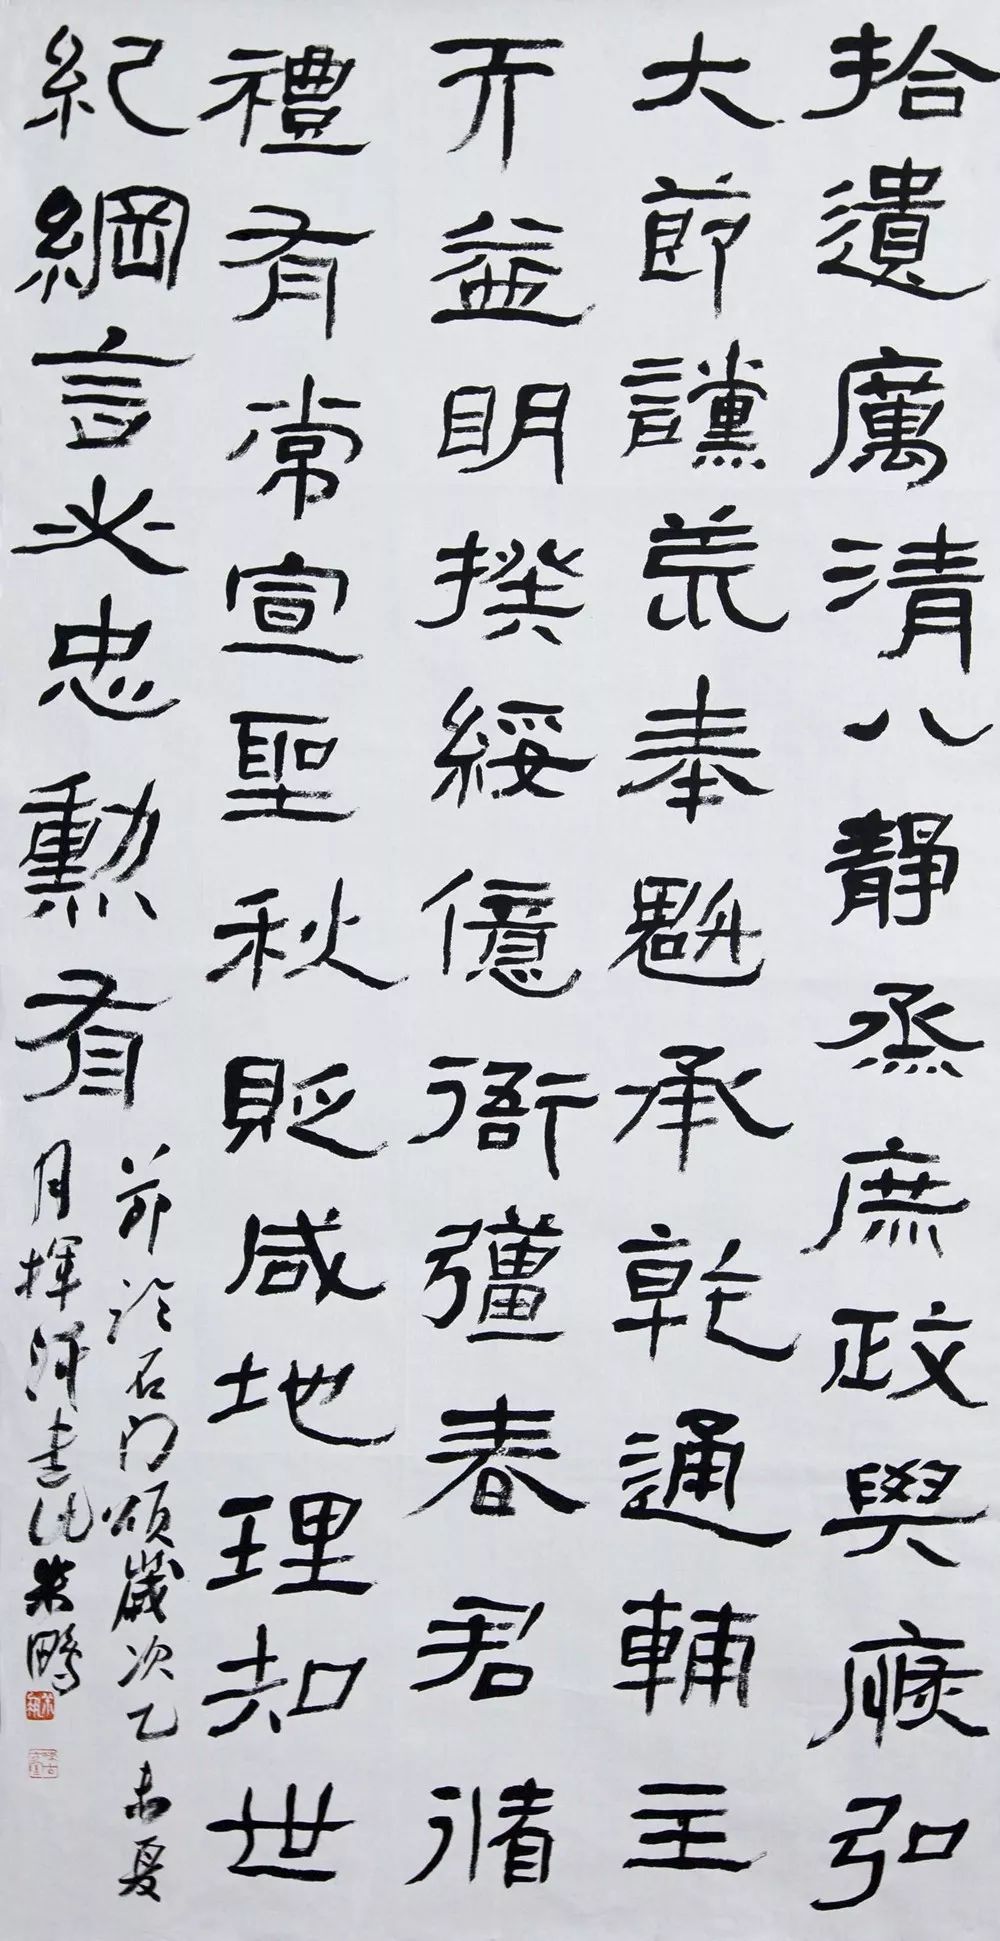 拾遺厲清八靜烝庶政與厥弘
大節讜荒奉魁承乾通輔主
而益明揆綏億衙彊春君循
禮有常宣聖秋貶咸地理知世
紀綱言必忠勳有
節臨石门頌歲次乙未夏
月揮汗朱鵬